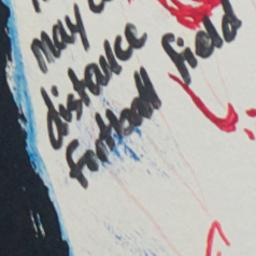 may
distance
football field